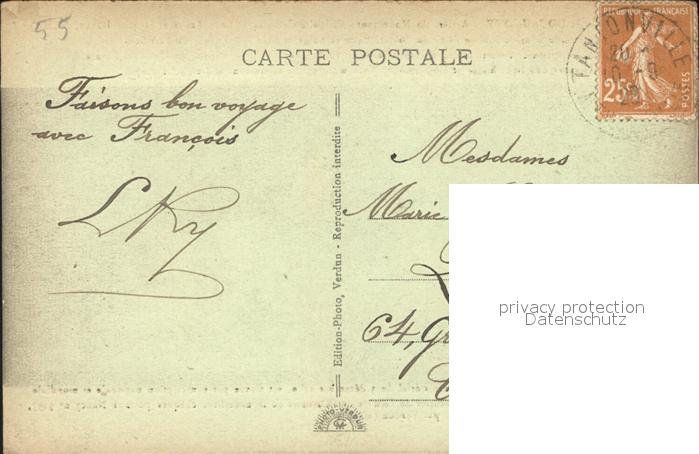 55
CARTE POSTALE
REPUBLIQUE FRANÇAISE
25c
POSTES
TANCONVILLE
Faisons bon voyage
avec François
Edition-Photo, Verdun - Reproduction interdite
Mesdames
Marie
64, Gr
privacy protection
Datenschutz
PHOTO-VERDUN